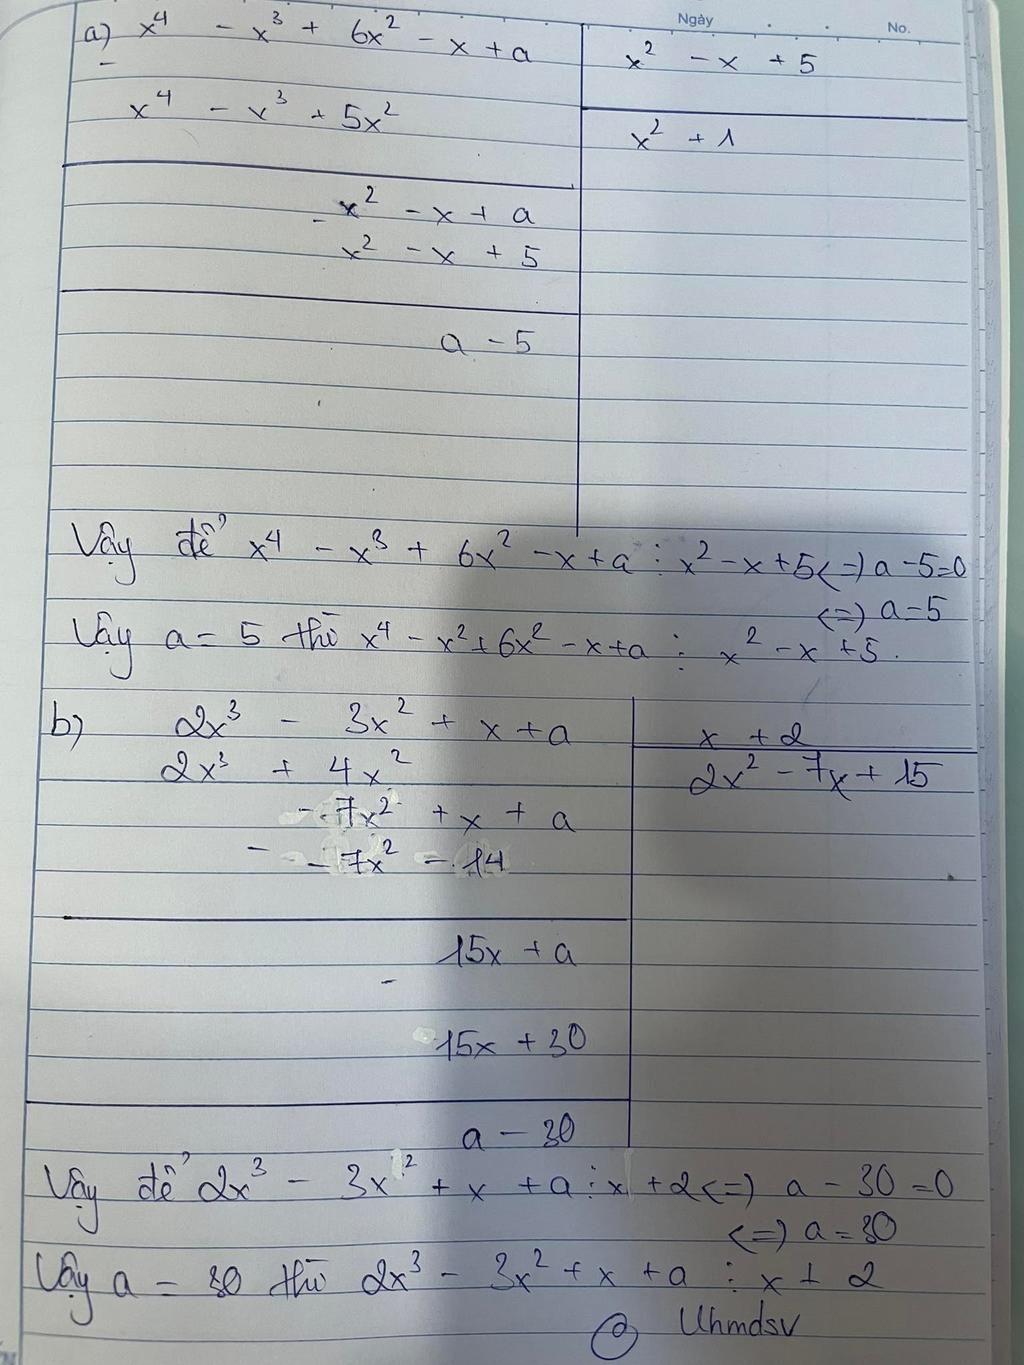 Ngày
No.
a) x⁴ - x³ + 6x² - x + a
x² - x + 5
-
x⁴ - x³ + 5x²
x² + 1
x² - x + a
-
x² - x + 5
a - 5
Vậy để x⁴ - x³ + 6x² - x + a ⋮ x² - x + 5 <=> a - 5 = 0
<=> a = 5
Vậy a = 5 thì x⁴ - x² + 6x² - x + a ⋮ x² - x + 5.
b) 2x³ - 3x² + x + a
x + 2
2x³ + 4x²
2x² - 7x + 15
- 7x² + x + a
-
- 7x² - 14
15x + a
-
15x + 30
a - 30
Vậy để 2x³ - 3x² + x + a ⋮ x + 2 <=> a - 30 = 0
<=> a = 30
Vậy a = 30 thì 2x³ - 3x² + x + a ⋮ x + 2
@ Uhmdsv